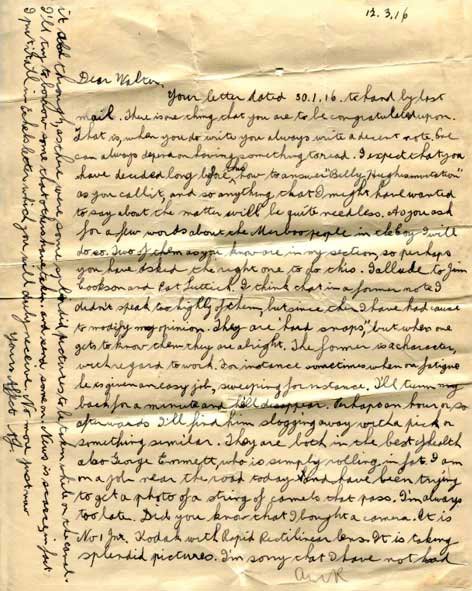 12.3.16
Dear Walter,
Your letter dated 30.1.16. to hand by last
mail. There is one thing that you are to be congratulated upon.
That is, when you do write you always write a decent note. One
can always depend on having something to read. I expect that you
have decided long before this, how to answer "Billy Hughes invitation"
as you call it, and so anything that I might have wanted
to say about the matter will be quite needless. As you ask
for a few words about the people in the boy I will
do so. Two of them as you know are in my section, so perhaps
you have asked the right one to do this. I allude to Jim
Cookson and Pat. I think that in a former note I
didn't speak too highly of them, but since then I have had cause
to modify my opinion. They are hard "snaps," but when one
gets to know them they are alright. The former is a character,
with regard to work. For instance sometimes when on fatigue
he is given an easy job, sweeping for instance. I'll turn my
back for a minute and he'll disappear. Perhaps an hour or so
afterwards I'll find him slogging away with a pick or
something similar. They are both in the best of health
also George Emmett, who is simply rolling in fat. I am
on a job near the road today and have been trying
to get a photo of a string of camels that pass. I'm always
too late. Did you know that I bought a camera. It is
No 1 Jnr. Kodak with Rapid Rectilinear lens. It is taking
splendid pictures. I'm sorry that I have not had
it all through, as there were some splendid pictures to be taken while on the canal.
I'll try to borrow some that others have taken and send some on. News is scarce, in fact
I put it all in letter which you will duly receive. No more just now
Yours Affect